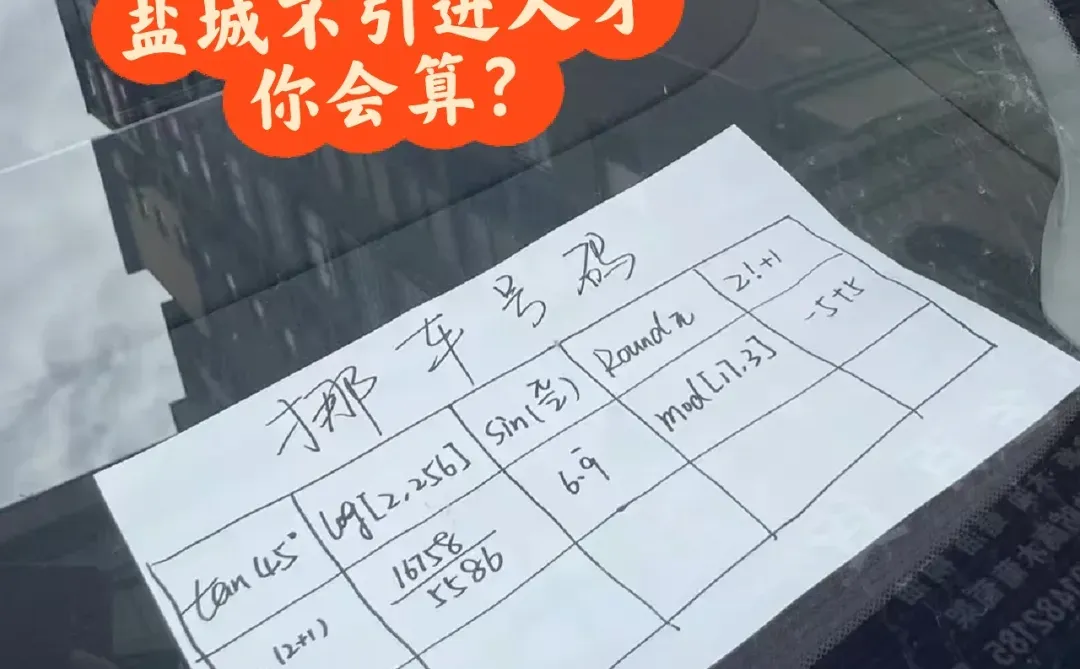 盐城不引进人才
你会算？
挪车号码
tan45° log[2,256] sin(π/2) Round π 2!+1
(2+1) 16758/5586 6.9̄ mod[17,3] -5+5